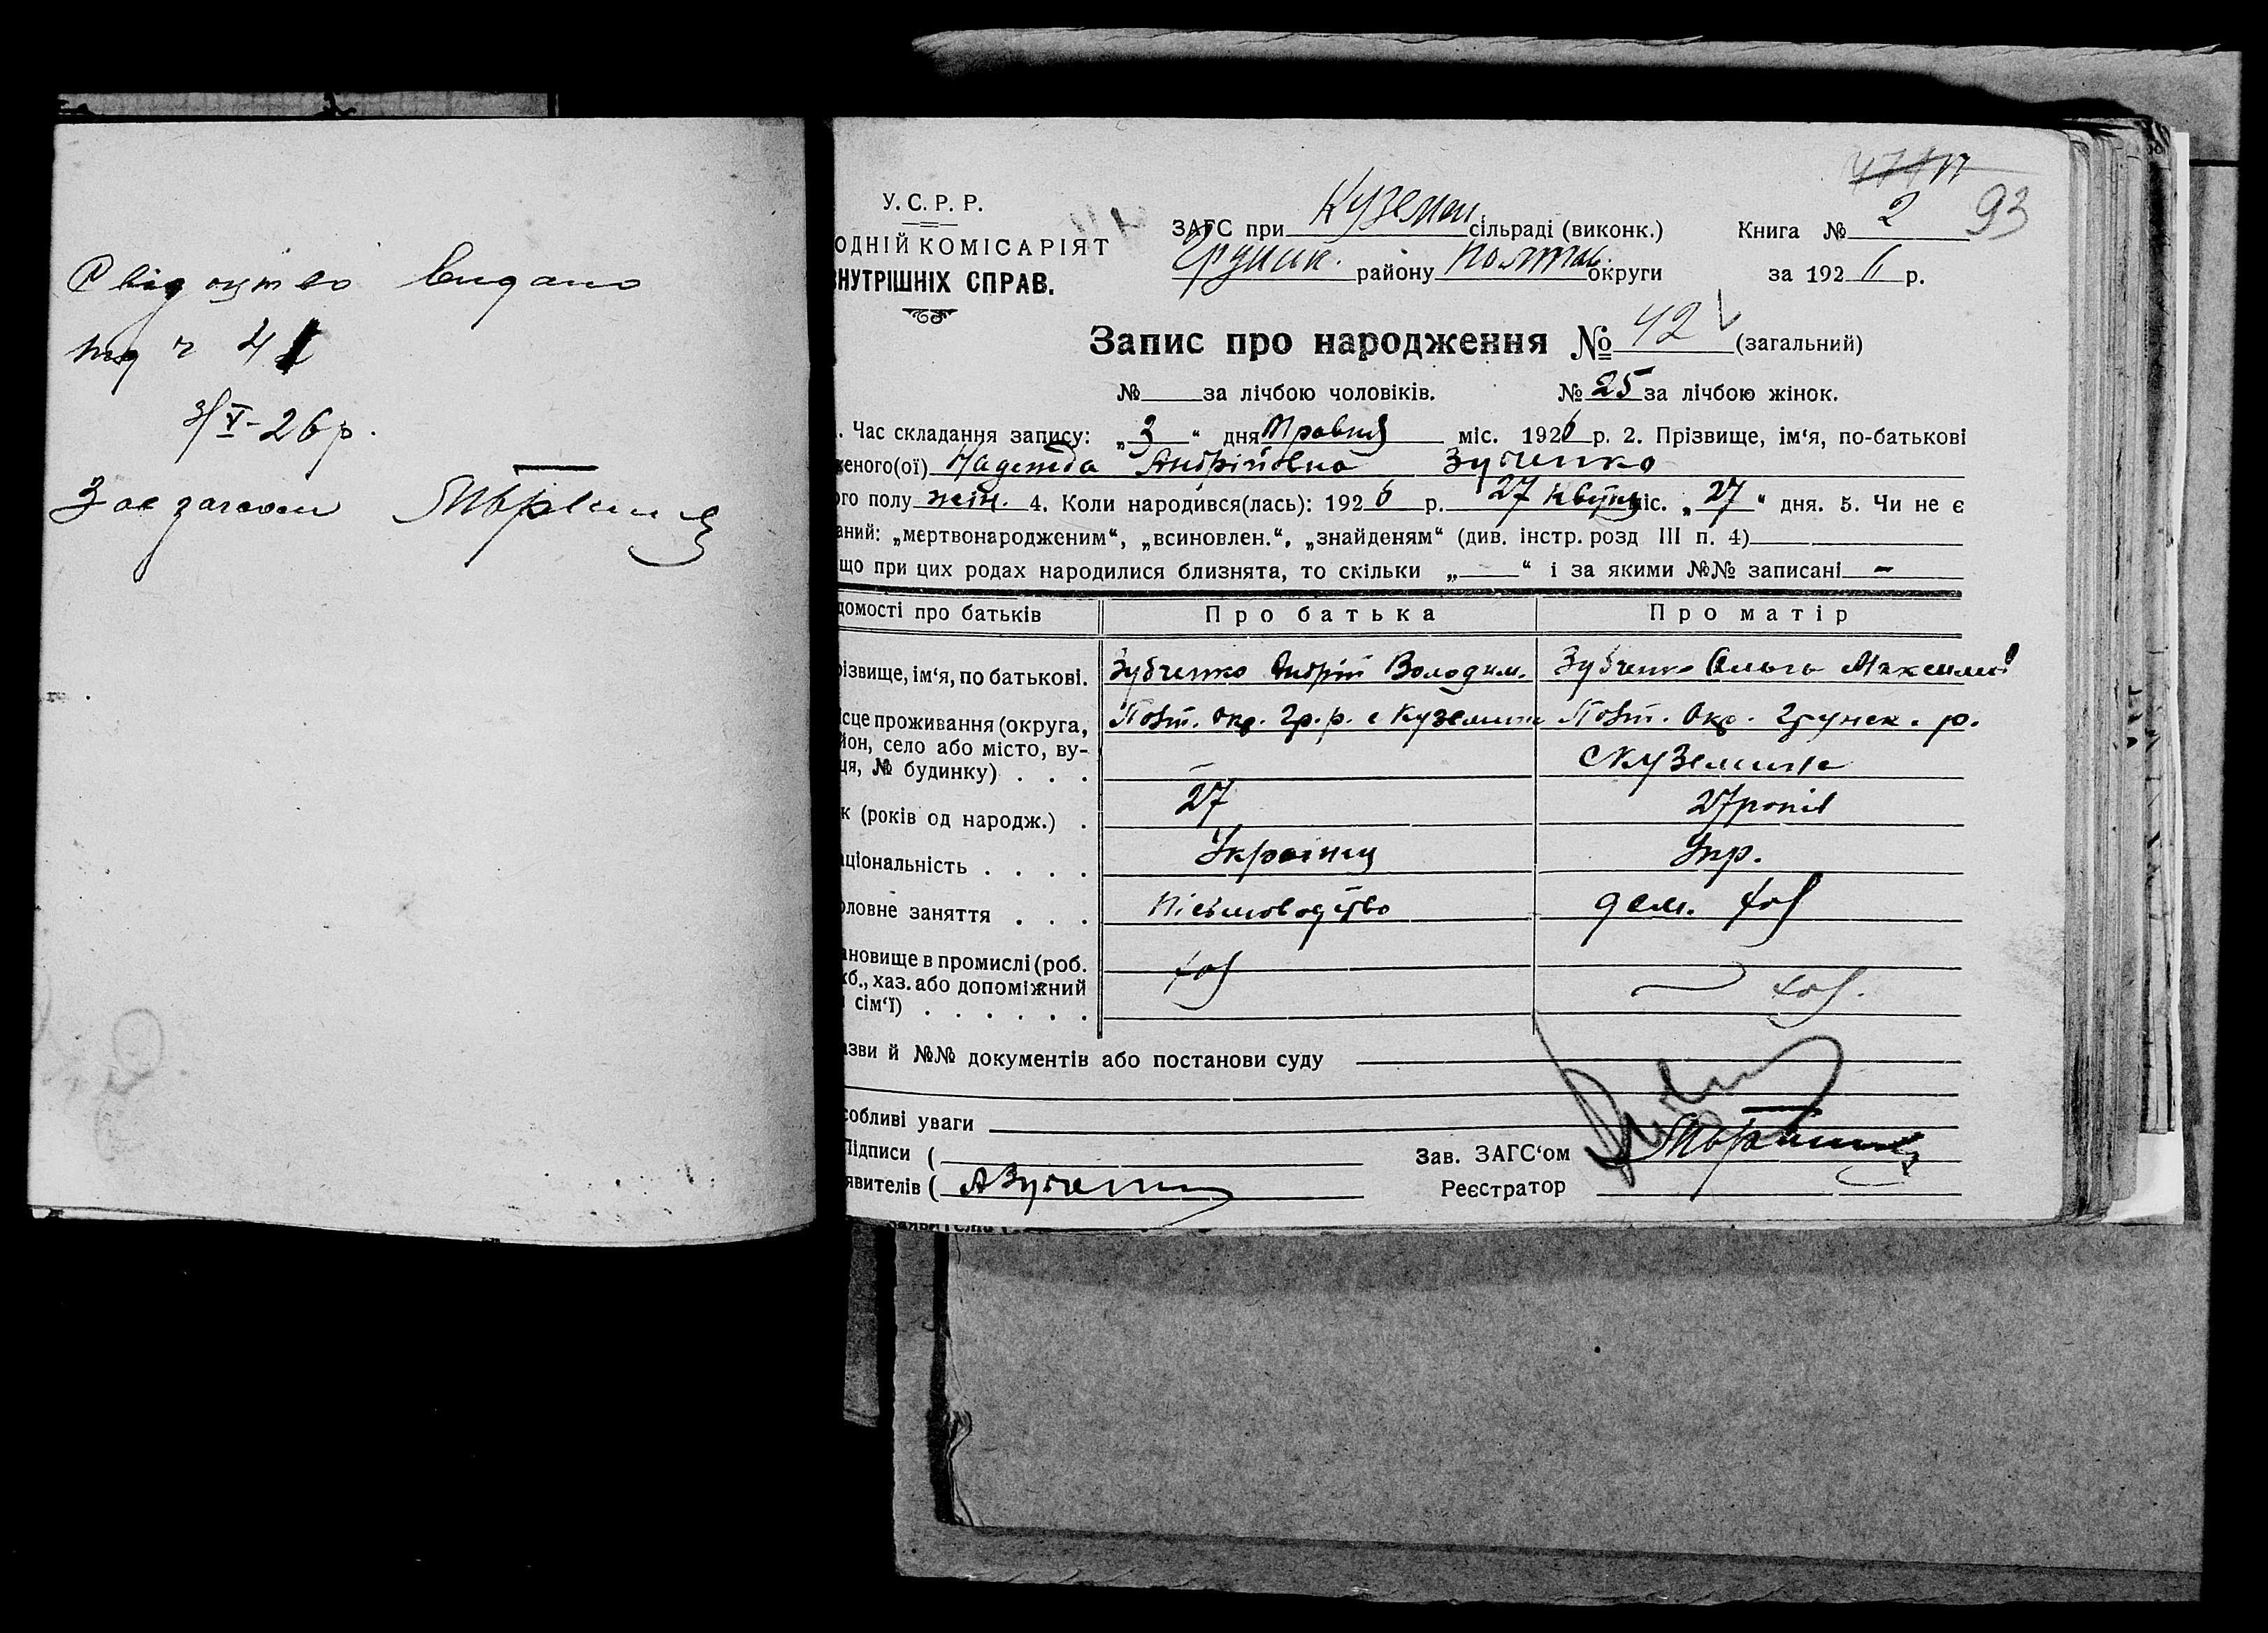 Свідоцтво видано
під ч 41
3/V-26 р.
Зав загсом
У. С. Р. Р.
ОДНІЙ КОМІСАРІЯТ
ВНУТРІШНІХ СПРАВ.
93
ЗАГС при Куземен сільраді (виконк.) Книга № 2
Грунск. району Полтав. округи за 1926 р.
Запис про народження № 42 (загальний)
№ за лічбою чоловіків. № 25 за лічбою жінок.
. Час складання запису: „3“ дня Травня міс. 1926 р. 2. Прізвище, ім‘я, по-батькові
женого(ої) Надежда Андрійовна Зубченко
ого полу жін. 4. Коли народився(лась): 1926 р. 27 Квітня міс. „27“ дня. 5. Чи не є
аний: „мертвонародженим“, „всиновлен.“, „знайденям“ (див. інстр. розд III п. 4)
що при цих родах народилися близнята, то скільки „ “ і за якими №№ записані -
домості про батьків Про батька Про матір
різвище, ім‘я, по батькові. Зубченко Андрій Володим. Зубченко Ольга Максимов
ісце проживання (округа, Полт. Окр. Гр. р. с Куземини Полт. Окр. Грунск. р.
йон, село або місто, ву-
ця, № будинку) . . . - с Куземини
к (років од народж.) . 27 27 років
аціональність . . . . Українец Укр.
оловне заняття . . . Пісьмоводство дом. хоз
ановище в промислі (роб.
жб., хаз. або допоміжний хоз хоз.
і сім‘ї) . . . . . .
азви й №№ документів або постанови суду
собливі уваги
Підписи (
явителів ( АЗубченко
Зав. ЗАГС‘ом
Реєстратор